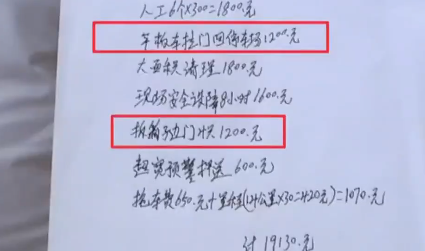 人工6个×300=1800.元
平板车拉门回停车场1200.元
大面积清理1800.元
现场安全设障8小时1600.元
拆箱子边门1次1200.元
超宽预警护送600.元
拖车费650.元+里程(14公里×30=420元)=1070.元
计19130.元